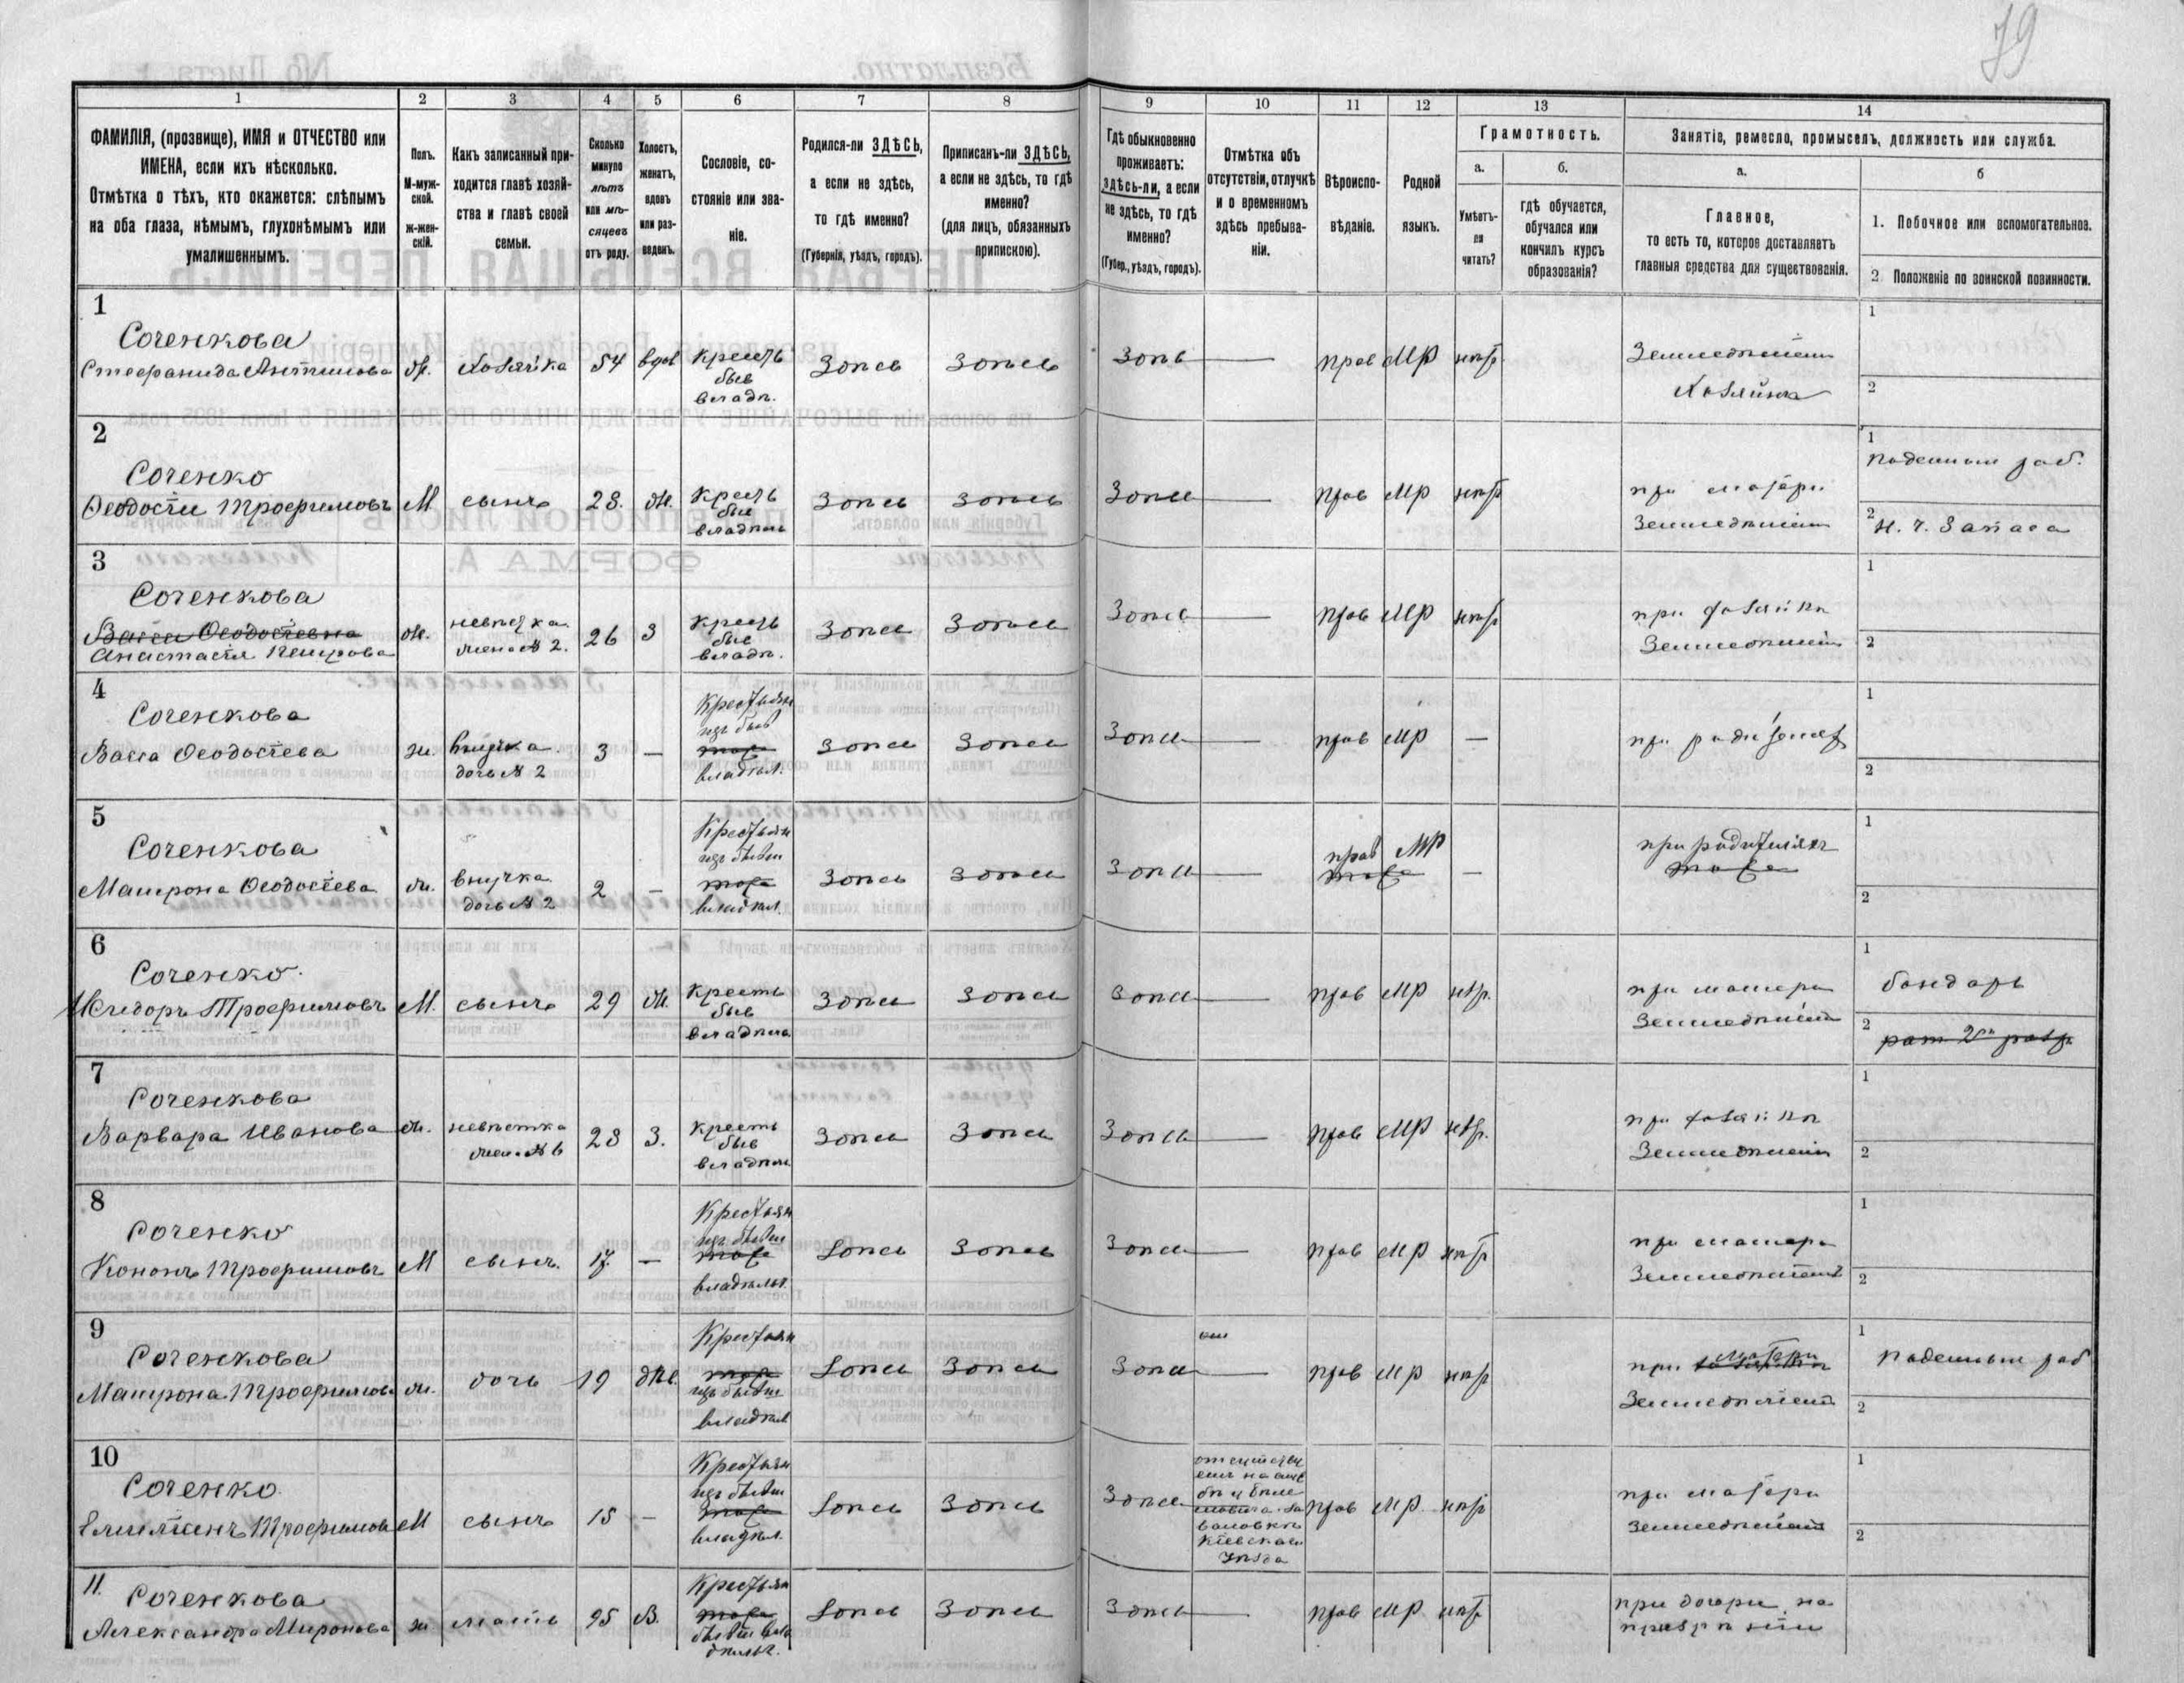 79
1 2 3 4 5 6 7 8 9 10 11 12 13 14
ФАМИЛІЯ, (прозвище), ИМЯ и ОТЧЕСТВО или
ИМЕНА, если ихъ нѣсколько.
Отмѣтка о тѣхъ, кто окажется: слѣпымъ
на оба глаза, нѣмымъ, глухонѣмымъ или
умалишеннымъ.
Полъ.
М-муж-
ской.
Ж-жен-
скій.
Какъ записанный при-
ходится главѣ хозяй-
ства и главѣ своей
семьи.
Сколько
минуло
лѣтъ
или мѣ-
сяцевъ
отъ роду.
Холостъ,
женатъ,
вдовъ
или раз-
веденъ.
Сословіе, со-
стояніе или зва-
ніе.
Родился-ли ЗДѢСЬ,
а если не здѣсь,
то гдѣ именно?
(Губернія, уѣздъ, городъ).
Приписанъ-ли ЗДѢСЬ,
а если не здѣсь, то гдѣ
именно?
(для лицъ, обязанныхъ
припискою).
Гдѣ обыкновенно
проживаетъ:
здѣсь-ли, а если
не здѣсь, то гдѣ
именно?
(Губер., уѣздъ, городъ).
Отмѣтка объ
отсутствіи, отлучкѣ
и о временномъ
здѣсь пребыва-
ніи.
Вѣроиспо-
вѣданіе.
Родной
языкъ.
Грамотность.
а.
Умѣетъ-
ли
читать?
б.
гдѣ обучается,
обучался или
кончилъ курсъ
образованія?
Занятіе, ремесло, промыселъ, должность или служба.
а.
Главное,
то есть то, которое доставляетъ
главныя средства для существованія.
б
1. Побочное или вспомогательное.
2 Положеніе по воинской повинности.
1
Соченкова
Стефанида Антипова ж. хозяйка 54 вдов крест
быв
владѣ.
здѣсь здѣсь здѣсь — прав МР нѣт
Земледѣліем
Хозяйка
1
2
2
Соченко
Ѳеодосій Трофимовъ М сынъ 28. ж. крест
быв
владѣль
здѣсь здѣсь здѣсь — прав МР нѣт
при матери
Земледѣліем
1
поденным раб.
2
н. ч. Запаса
3
Соченкова
Васса Ѳеодосіевна
Анастасія Петрова ж. невѣстка
жена № 2. 26 З крест
быв
владѣ.
здѣсь здѣсь здѣсь — прав МР нѣт
при хозяйкѣ
Земледѣліем
1
2
4
Соченкова
Васса Ѳеодосіева ж. внучка
дочь № 2 3 — Крестьян
изъ быв
тоже
владѣл.
здѣсь здѣсь здѣсь — прав МР —
1
2
5
Соченкова
Матрона Ѳеодосіева ж. внучка
дочь № 2 2 — Крестьян
изъ бывш
тоже
владѣл.
здѣсь здѣсь здѣсь — прав МР —
тоже
при родителяхъ
тоже
1
2
6
Соченко.
Исидоръ Трофимовъ М. сынъ 29 ж. крестъ
быв
владѣль
здѣсь здѣсь здѣсь — прав МР нѣт.
при матери
Земледѣліем
1
бондарь
2
7
Соченкова
Варвара Иванова ж. невѣстка
жена № 6 28 З. крестъ
быв
владѣль
здѣсь здѣсь здѣсь — прав МР нѣт.
при хозяйкѣ
Земледѣліем
1
2
8
Соченко
Кононъ Трофимовъ М сынъ. 17. — Крестьян
изъ бывш
тоже
владѣльч.
здѣсь здѣсь здѣсь — прав МР нѣт
при матери
Земледѣліем
1
2
9
Соченкова
Матрона Трофимова ж. дочь 19 дѣв. Крестьян
тоже
изъ бывш
владѣл
здѣсь здѣсь здѣсь — прав МР нѣт
при матери
Земледѣліем
1
поденным раб
2
10
Соченко.
Емиліанъ Трофимов М сынъ 15 — Крестьян
изъ бывш
тоже
владѣл.
здѣсь здѣсь здѣсь
Кіевскаго
уѣзда
прав МР. нѣт
при матери
Земледѣліем
1
2
11.
Соченкова
Александра Миронова ж мать 95 В. Крестьян
тоже
бывш вла
дѣльч.
здѣсь здѣсь здѣсь — прав МР нѣт
при дочери на